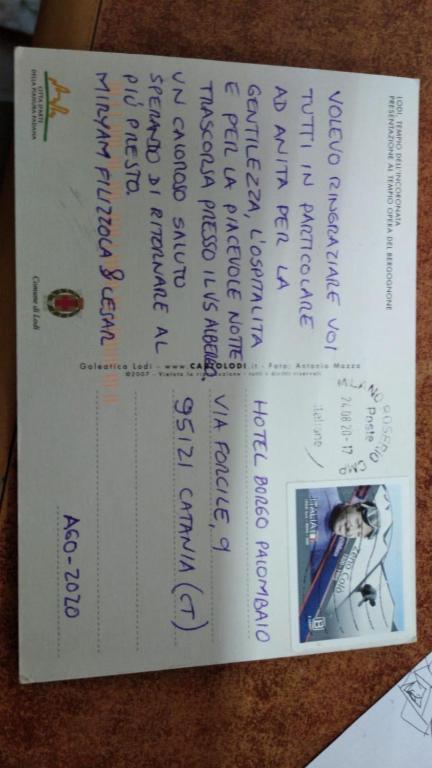 LODI, TEMPIO DELL'INCORONATA
PRESENTAZIONE AL TEMPIO OPERA DEL BERGOGNONE
VOLEVO RINGRAZIARE VOI
TUTTI IN PARTICOLARE
AD ANITA PER LA
GENTILEZZA, L'OSPITALITA
E PER LA PIACEVOLE NOTTE
TRASCORSA PRESSO IL VS ALBERGO.
UN CALOROSO SALUTO
SPERANDO DI RITORNARE AL
PIÙ PRESTO
MIRYAM FILIZZOLA & CESAR
CITTÀ D'ARTE
DELLA PIANURA PADANA
Comune di Lodi
Galeatica Lodi - www.CARTOLODI.it - Foto: Antonio Mazza
©2007 - Vietata la riproduzione - tutti i diritti riservati
MILANO ROSERIO CMP
Poste
24.08.20-17
italiane
ITALIA
Zeno Colò
B
HOTEL BORGO PALOMBAIO
VIA FORCILE, 9
95121 CATANIA (CT)
AGO-2020